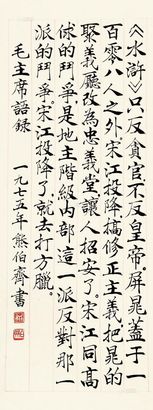 《水滸》只反貪官不反皇帝。屏晁蓋于一
百零八人之外宋江投降搞修正主義把晁的
聚義廳改為忠義堂讓人招安了宋江同高
俅的鬥爭是地主階級內部這一派反對那一
派的鬥爭宋江投降了就去打方臘。
毛主席語錄 一九七五年熊伯齊書